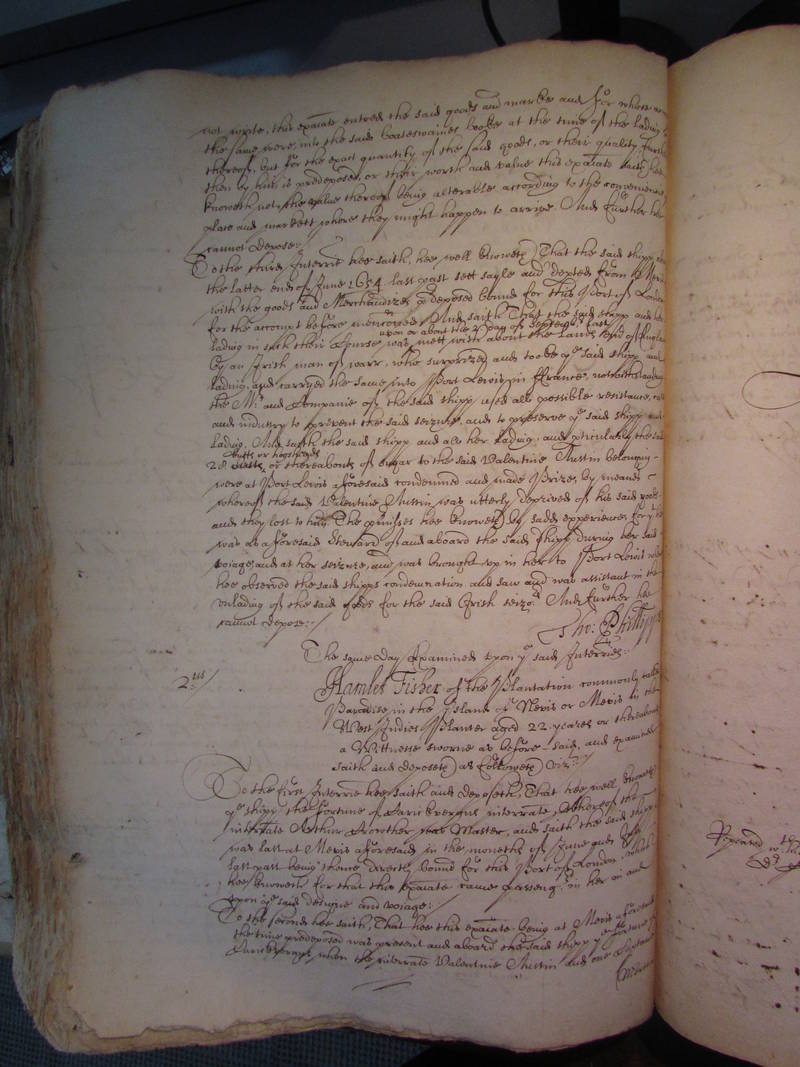 not wrote, this exáiate entred the said goods and marke and for whose
the same were, into the said boateswaines booke at the time of the lading
thereof, but for the exact quantity of the said goods, or their quality further
then by him is predeposed, or their worth and value this exáiate saith hee
knoweth not, the value thereof being alterable according to the conveniencie
place and markett where they might happen to arrive. And further hee
cannot depose./
To the third Interrie hee saith, hee well knoweth That the said shipp
the latter end of June 1654 last past sett sayle and depted from
with the goods and Merchandizes predeposed bound for this Port of London
for the accompt before mencioned, And saith That the said shipp and
upon or about the day of September last
lading in such their Course was mett with about the lands end of England
by an Irish man of warr, who surprized and tooke ye said shipp and
lading, and carryed the same into Port Lewis in ffrance, notwithstanding
the Mr and Companie of the said shipp used all possible resistance,
and industry to prevent the said seizure, and to preserve ye said shipp and
lading, And saith the said shipp and all her lading, and pticularly the said
butts or hogsheads
28 or thereabouts of sugar to the said Valentine Austin belonging
were at Port Lewis aforesaid condemned and made Prizes by meanes
whereof the said Valentine Austin was utterly deprived of his said goods
and they lost to him, The pmisses hee knoweth by sadd experience for
was as aforesaid Steward of and aboard the said shipp during her said
voiage, and at her seizure, and was brought up in her to Port Lewis
hee observed the said shipps condemnation and saw and was assistant in the
unlading of the said goods for the said Irish seizors And further hee
cannot depose:
Tho: Phillipps
The same day Examined upon ye said Interries.
2us/
Hamlet Fisher of the Plantation commonly
Paradise, in the Island of Nevis or Mevis in the
West Indies Planter aged 22. yeares or thereabouts
a Wittnesse sworne as before said, and examined
saith and deposeth as followeth Vizt
To the first Interrie hee saith and deposeth, That hee well knoweth
ye shipp the fortune of Carickfergus interrate, whereof the
interrate Arthur was Master, and saith the said shipp
was last at Mevis aforesaid in the moneth of June
last past being thence directly bound for this Port of London, which
hee knoweth for that this exáiate came passengr in her in and
upon ye said designe and voiage:
To the second hee saith, That hee this exáiate being at Mevis aforesaid
the time predeposed was present and aboard the said shipp ye fortune of
when the interrate Valentine Austin and one